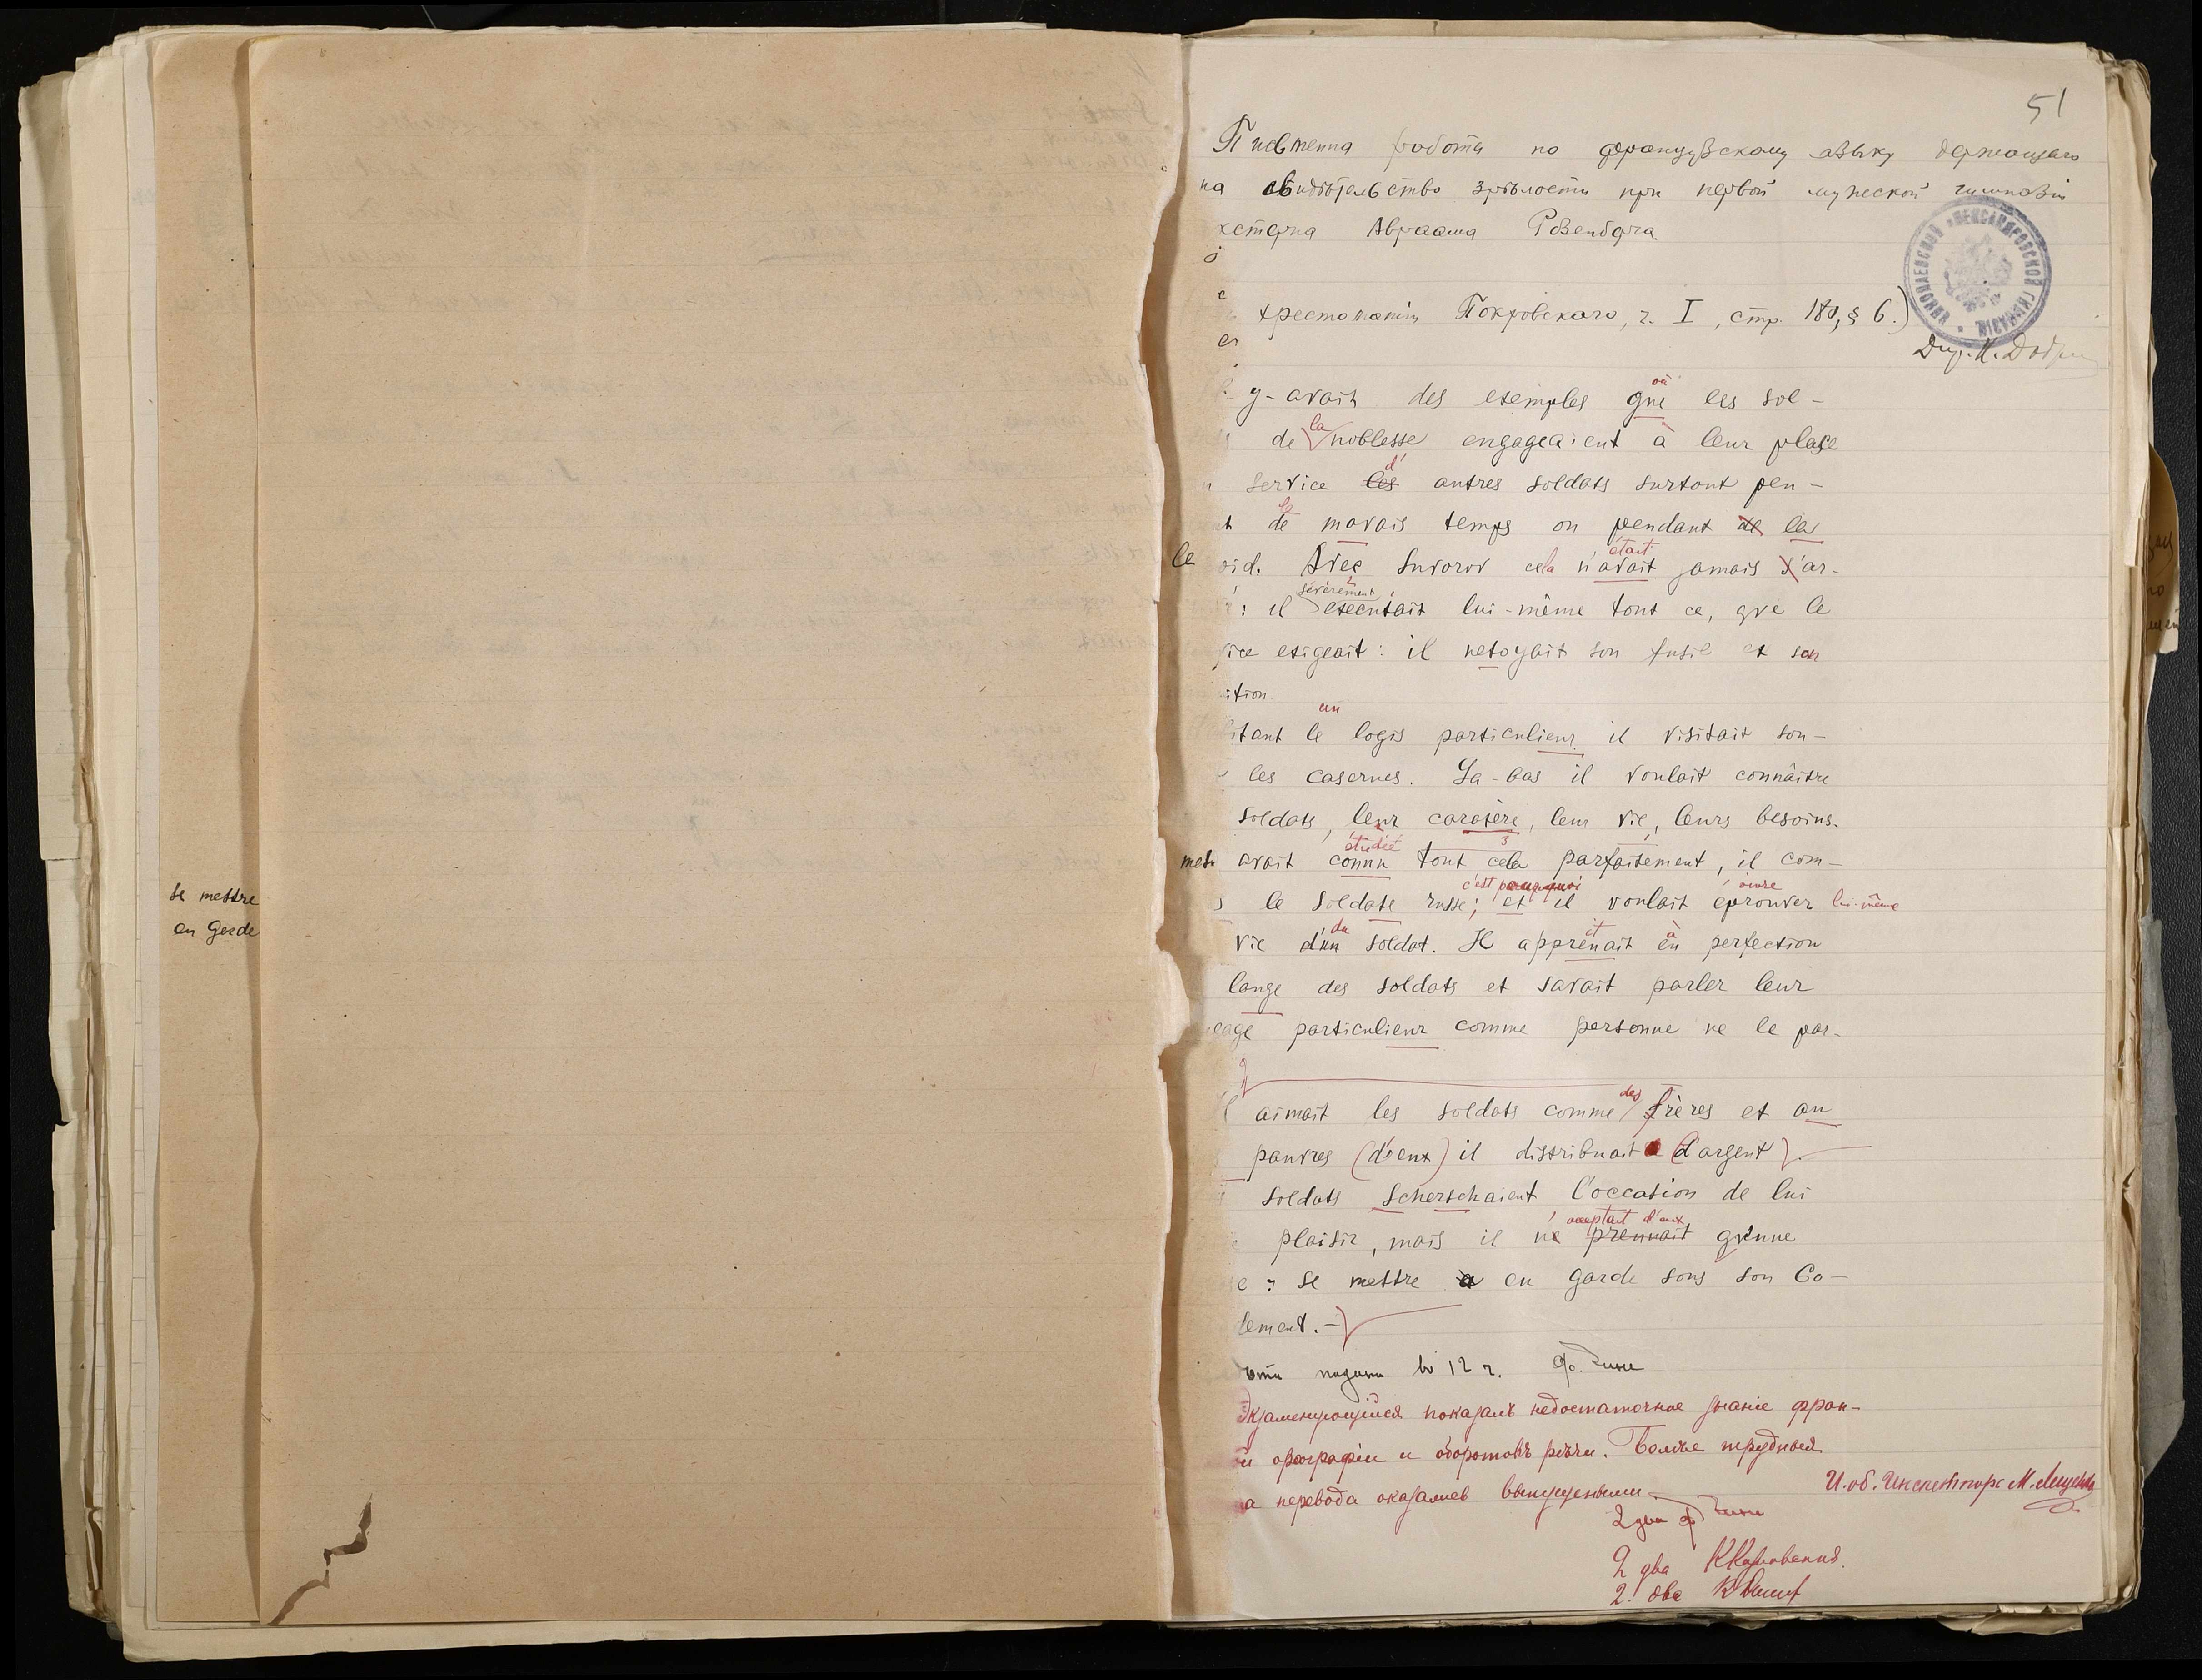 se mettre
en garde
51
Письменна работа по французскому языку держащаго
на свидѣтельство зрѣлости при первой мужской гимназіи
Авраама Розенберга
хрестоматіи Покровскаго, ч. I, стр. 180, § 6.)
НИКОЛАЕВСКОЙ АЛЕКСАНДРОВСКОЙ ГИМНАЗІИ
Дир. К.
où
y-avait des exemples que les sol-
la
de noblesse engageaient à leur place
d'
service les autres soldats surtout pen-
le
de mavais temps ou pendant de la
était
oid. Avec Suvorov cela n'avait jamais s'ar-
sévèrement
: il executait lui-même tout ce, que le
vice exigeait: il netoyait son fusil et son
ition
un
itant le logis particulieur il visitait sou-
les casernes. La-bas il voulait connâitre
soldats, leur caratère, leur vie, leurs besoins.
étudié 3
avait connu tout cela parfaitement, il com-
c'est pourquoi
le soldate russe; et il voulait éprouver lui-même
du it à
vie d'un soldat. Il apprenait en perfection
lange des soldats et savait parler leur
gage particulieur comme personne ne le par-
des
aimait les soldats comme frères et au
pauvres (d'eux) il distribuait (d'argent).
soldats scherschaient l'occasion de lui
acceptait d'eux
plaisir, mais il ne prennait qu'une
e: se mettre en garde sous son Co-
lement.-
подана въ 12 ч.
Экзаменующійся показалъ недостаточное знаніе фран-
орѳографіи и оборотовъ рѣчи. Болѣе трудныя
а перевода оказались выпущенными.
И. об. Инспектора М. Лещенко
2 два
2 два
2. два